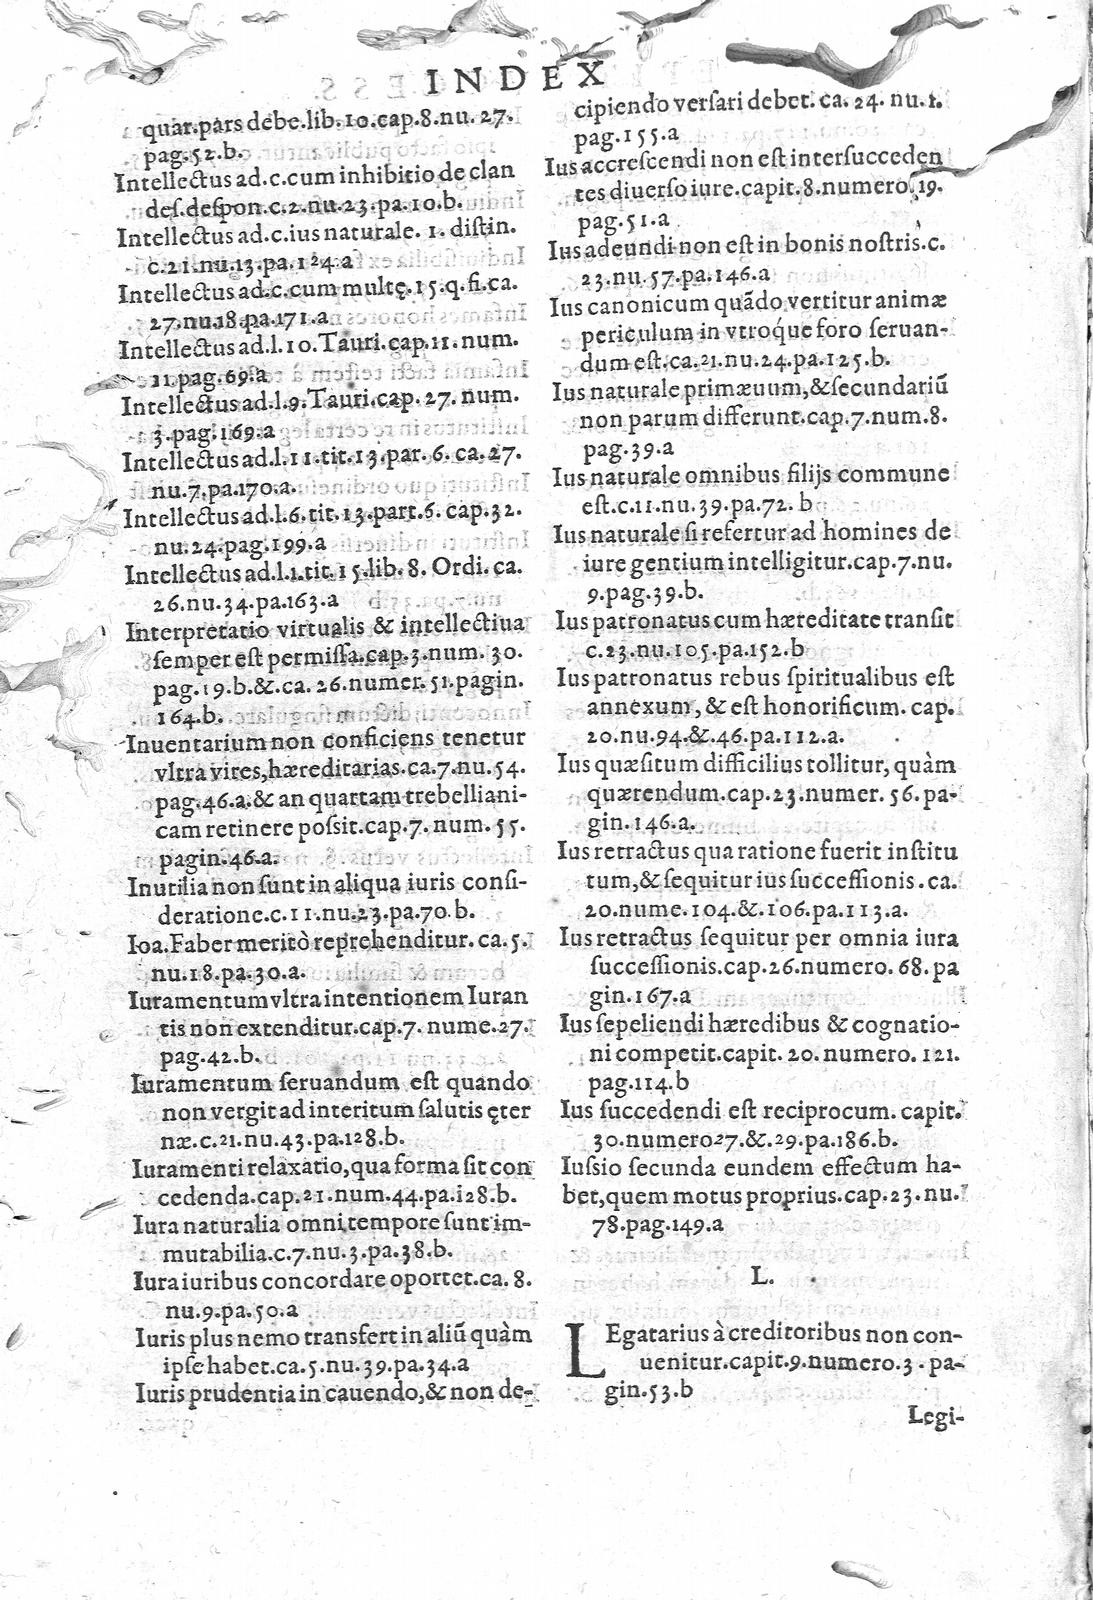 INDEX
quar.pars debe.lib.10.cap.8.nu.27.
pag.52.b.
Intellectus ad.c.cum inhibitio de clan
des.despon.c.2.nu.23.pa.10.b.
Intellectus ad.c.ius naturale. 1. distin.
c.21.nu.13.pa.124.a
Intellectus ad.c.cum multę.15.q.fi.ca.
27.nu.18.pa.171.a
Intellectus ad.l.10.Tauri.cap.11.num.
11.pag.69.a
Intellectus ad.l.9.Tauri.cap. 27. num.
3.pag.169.a
Intellectus ad.l.11.tit.13.par. 6. ca.27.
nu.7.pa.170.a.
Intellectus ad.l.6.tit.13.part.6. cap.32.
nu.24.pag.199.a
Intellectus ad.l.1.tit.15.lib. 8. Ordi. ca.
26.nu.34.pa.163.a
Interpretatio virtualis & intellectiua
semper est permissa.cap.3.num. 30.
pag.19.b.&.ca. 26.numer. 51.pagin.
164.b.
Inuentarium non conficiens tenetur
vltra vires,hæreditarias.ca.7.nu.54.
pag.46.a.& an quartam trebelliani-
cam retinere possit.cap.7. num. 55.
pagin.46.a.
Inutilia non sunt in aliqua iuris consi-
deratione.c.11.nu.23.pa.70.b.
Ioa.Faber meritò reprehenditur. ca.5.
nu.18.pa.30.a.
Iuramentum vltra intentionem Iuran
tis non extenditur.cap.7. nume.27.
pag.42.b.
Iuramentum seruandum est quando
non vergit ad interitum salutis ęter
næ.c.21.nu.43.pa.128.b.
Iuramenti relaxatio,qua forma sit con
cedenda.cap.21.num.44.pa.128.b.
Iura naturalia omni tempore sunt im-
mutabilia.c.7.nu.3.pa.38.b.
Iura iuribus concordare oportet.ca. 8.
nu.9.pa.50.a
Iuris plus nemo transfert in aliũ quàm
ipse habet.ca.5.nu.39.pa.34.a
Iuris prudentia in cauendo,& non de-
cipiendo versari debet. ca. 24. nu.1.
pag.155.a
Ius accrescendi non est inter succeden
tes diuerso iure.capit.8.numero.19.
pag.51.a
Ius adeundi non est in bonis nostris.c.
23.nu.57.pa.146.a
Ius canonicum quãdo vertitur animæ
periculum in vtroque foro seruan-
dum est.ca.21.nu.24.pa.125.b.
Ius naturale primæuum,& secundariũ
non parum differunt.cap.7.num.8.
pag.39.a
Ius naturale omnibus filijs commune
est.c.11.nu.39.pa.72. b
Ius naturale si refertur ad homines de
iure gentium intelligitur.cap.7.nu.
9.pag.39.b.
Ius patronatus cum hæreditate transit
c.23.nu.105.pa.152.b
Ius patronatus rebus spiritualibus est
annexum, & est honorificum. cap.
20.nu.94.&.46.pa.112.a.
Ius quæsitum difficilius tollitur, quàm
quærendum.cap.23.numer. 56.pa-
gin.146.a.
Ius retractus qua ratione fuerit institu
tum,& sequitur ius successionis.ca.
20.nume.104.&.106.pa.113.a.
Ius retractus sequitur per omnia iura
successionis.cap.26.numero. 68.pa
gin.167.a
Ius sepeliendi hæredibus & cognatio-
ni competit.capit. 20. numero. 121.
pag.114.b
Ius succedendi est reciprocum. capit.
30.numero27.&.29.pa.186.b.
Iussio secunda eundem effectum ha-
bet,quem motus proprius.cap.23.nu.
78.pag.149.a
L.
LEgatarius à creditoribus non con-
uenitur.capit.9.numero.3. pa-
gin.53.b
Legi-